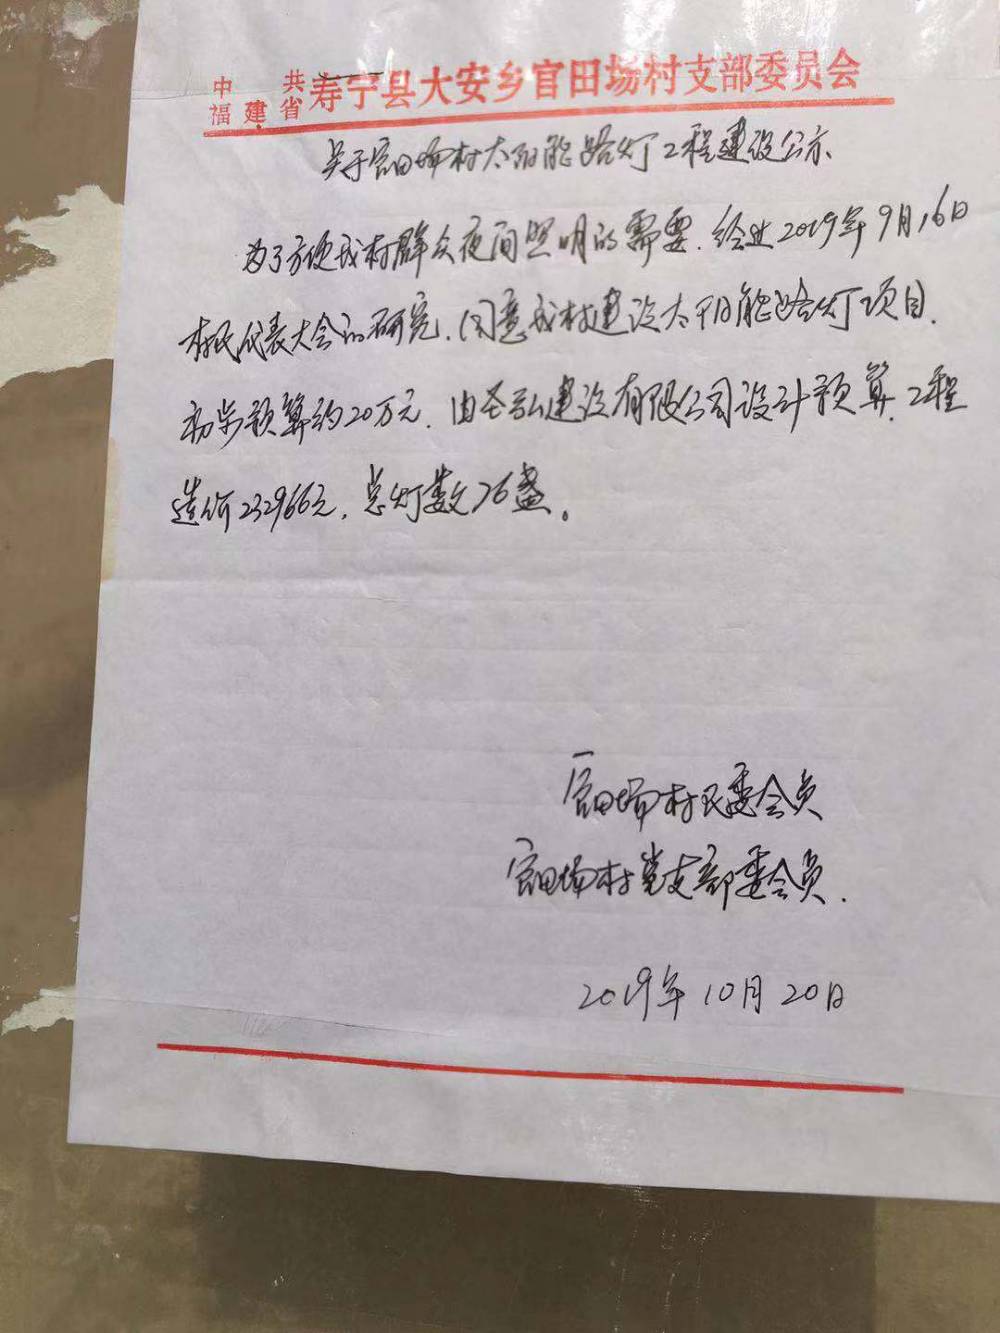 中共福建省寿宁县大安乡官田场村支部委员会
关于官田场村太阳能路灯工程建设公示
为了方便我村群众夜间照明的需要.经过2019年9月16日
村民代表大会的研究,同意我村建设太阳能路灯项目.
初步预算约20万元.由圣弘建设有限公司设计预算.工程
造价232966元,总灯数76盏。
官田场村民委会员
官田场村党支部委会员.
2019年10月20日